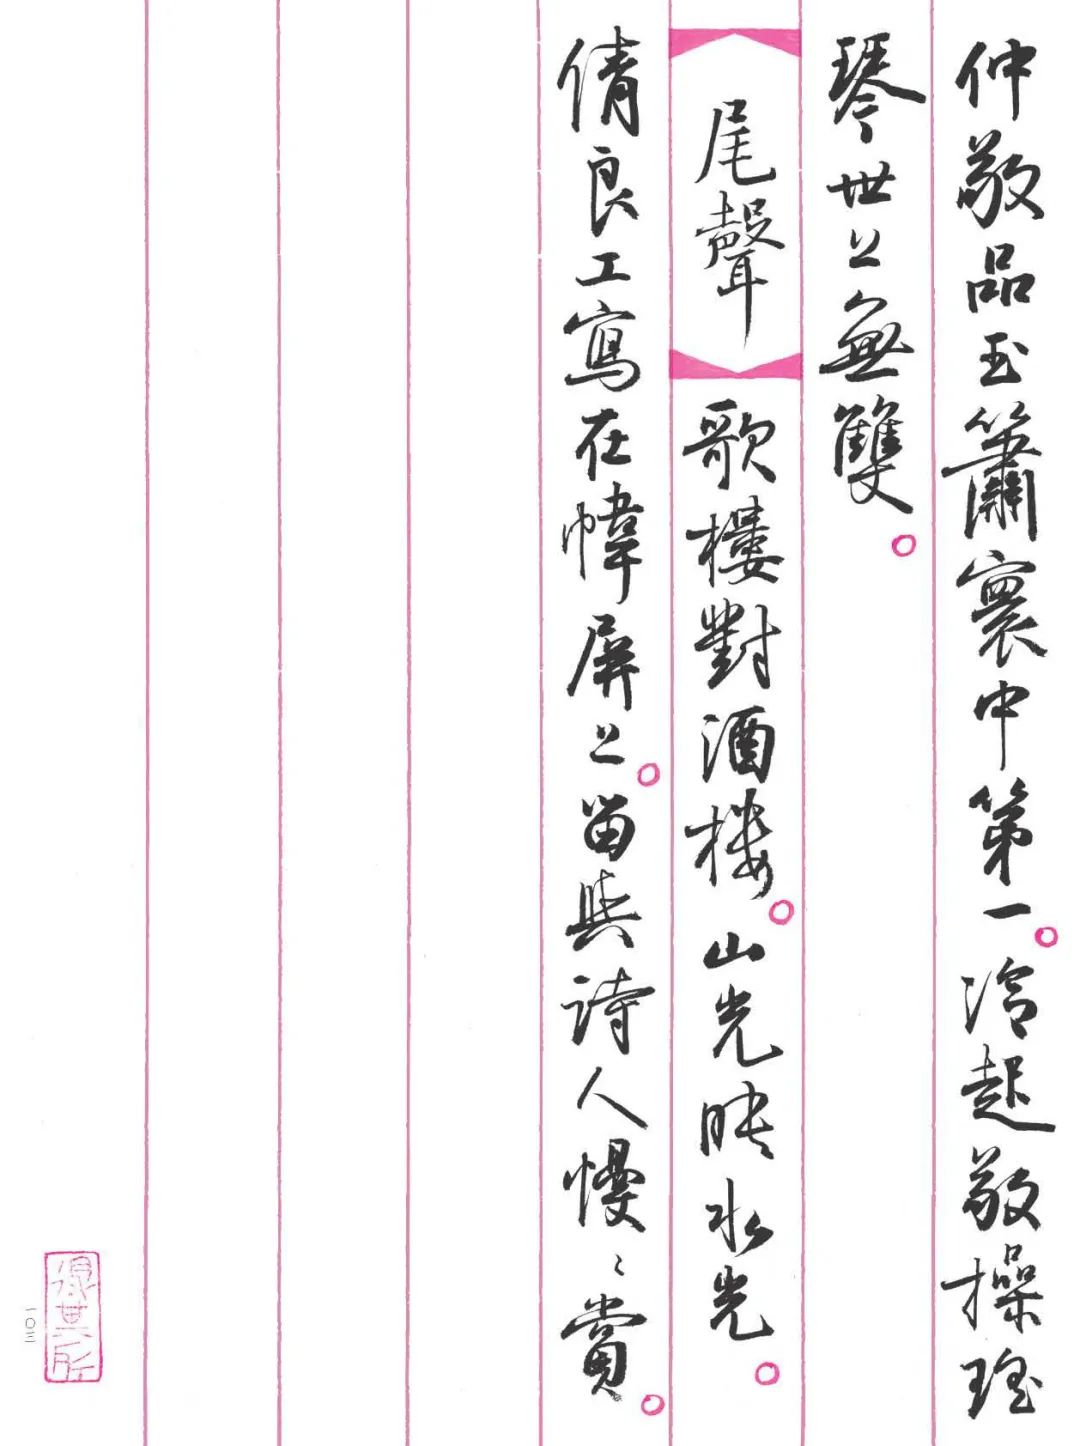 仲敬品玉簫寰中第一。冷起敬操瑤
琴世上無雙。
尾聲 歌樓對酒樓。山光映水光。
倩良工寫在幃屏上。留與詩人慢慢賞。
得其所
一〇三